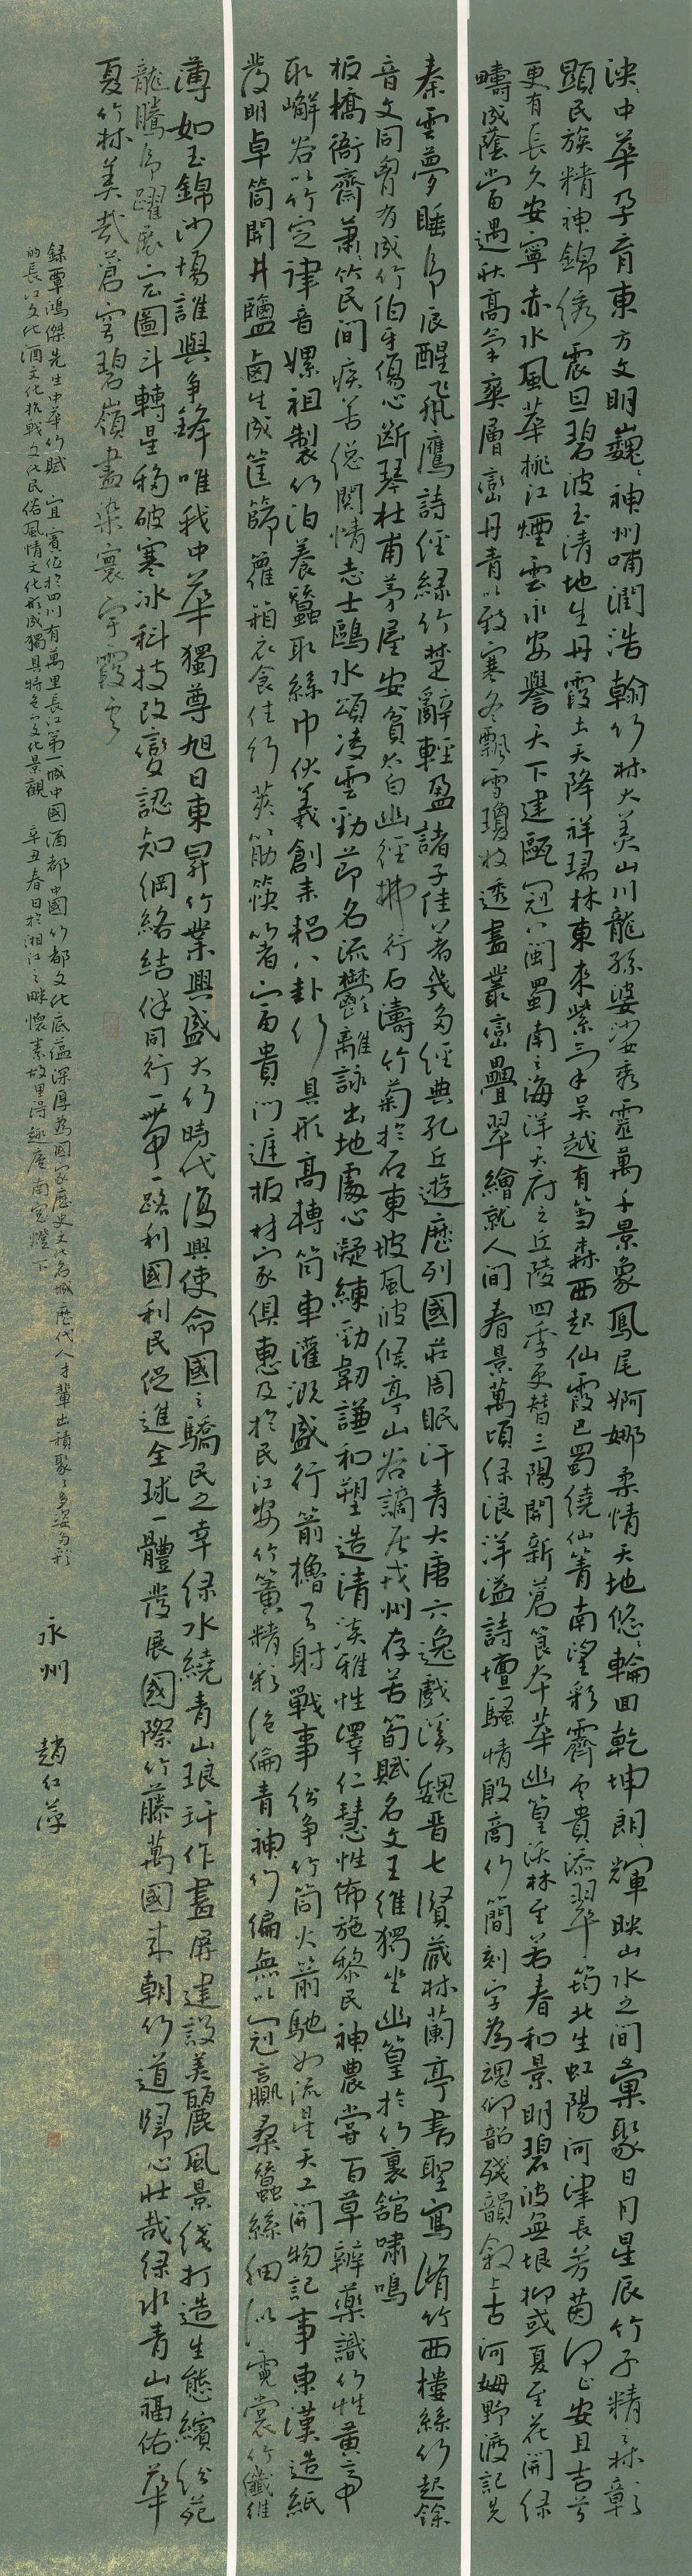 泱々中華孕育東方文明巍々神州哺潤浩翰竹林大美山川龍孫婆娑秀靈萬千景象鳳尾婀娜柔情天地悠々輪回乾坤朗々輝映山水之間彙聚日月星辰竹子精々林彰
顯民族精神錦綉震旦碧波玉清地生丹霞土天降祥瑞林東來紫氣吳越有篁森西起仙霞巴蜀繞仙箐南望彩霽雲貴添翠筠北生虹陽河津長芳茵安且吉兮
更有長久安寧赤水風華桃江煙雲永安譽天下建甌冠八閩蜀南之海洋天府之丘陵四季更替三陽開新蒼筤本華幽篁沃林至若春和景明碧波無垠抑或夏至花開綠
疇成蔭當遇秋高氣爽層巒丹青以致寒冬飄雪瓊枝透盡叢巒疊翠繪就人間春景萬頃綠浪洋溢詩壇騷情殷商竹簡刻字為魂仰韶殘韻叙上古河姆野渡記先
秦雲夢睡虎辰醒飛鷹詩經綠竹楚辭輕盈諸子佳著幾多經典孔丘遊歷列國莊周眠汗青大唐六逸戲溪魏晋七賢蔵林蘭亭書聖寫脩竹西樓絲竹起餘
音文同胸有成竹伯牙傷心斷琴杜甫茅屋安貧太白幽徑拂行石濤竹菊於石東坡風波候亭山谷謫居戎州存苦筍賦名文王維獨坐幽篁於竹裏舘嘯鳴
板橋衙齋蕭々竹民間疾苦總関情志士鷗水頌凌雲勁節名流鬱離詠出地處心凝練勁韌謙和塑造清淡雅性澤仁慧性佈施黎民神農嘗百草辨藥識竹性黃帝
取嶰谷以竹定律音嫘祖製竹泊養蠶取絲巾伏義創耒耜八卦竹具形高轉筒車灌溉盛行箭櫓弓射戰事紛争竹筒火箭馳如流星天工開物記事東漢造紙
發明卓筒開井鹽鹵生成筐篩籮箱衣食住行筴筋筷箸富貴门進板材家俱惠及於民江安竹簧精彩絕倫青神竹編無以冠贏桑蠶絲細似霓裳竹纖維
薄如玉錦沙場誰與争鋒唯我中華獨尊旭日東昇竹業興盛大竹時代復興使命國之驕民之幸綠水繞青山琅玕作畫屏建設美麗風景綫打造生態繽紛苑
龍騰虎躍展宏圖斗轉星移破寒冰科技改變認知網絡結伴同行一帶一路利國利民促進全球一體發展國際竹藤萬國来朝竹道歸心壯哉綠水青山福佑華
夏竹林美哉蒼穹碧嶺盡染寰宇霞雲
錄覃鴻傑先生中華竹賦 宜賓位於四川有萬里長江第一城中國酒都中國竹都文化底藴深厚為國家歷史文化名城歷代人才輩出積聚了多姿多彩
的長江文化酒文化抗戰文化民俗風情文化形成獨具特色之文化景觀 辛丑春日於湘江之畔懷素故里得趣廬南窓燈下
永州 趙紅萍